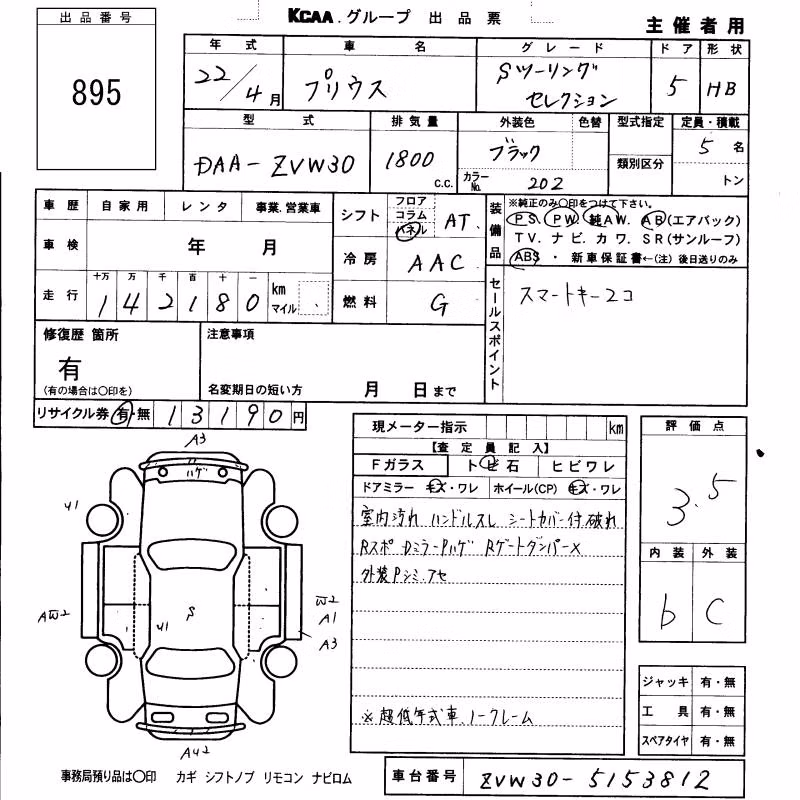 出品番号
895
KCAA.グループ 出品票
主催者用
年式 車名 グレード ドア 形状
22/4月 プリウス Sツーリングセレクション 5 HB
型式 排気量 外装色 色替 型式指定 定員・積載
DAA-ZVW30 1800 c.c. ブラック 類別区分 5名
カラーNo. 202 トン
車歴 自家用 レンタ 事業.営業車
車検 年 月
走行 十万 万 千 百 十 一
142180 km マイル
シフト フロア コラム パネル AT.
冷房 AAC
燃料 G
装備品
※純正のみ〇印をつけて下さい。
PS. PW. 純AW. AB(エアバック)
TV. ナビ. カワ. SR(サンルーフ)
ABS ・ 新車保証書←(注)後日送りのみ
セールスポイント
スマートキー2コ
修復歴 箇所
有
(有の場合は〇印を)
注意事項
名変期日の短い方 月 日まで
リサイクル券 有・無 13190円
現メーター指示 km
【査定員記入】
Fガラス ト ビ 石 ヒビワレ
ドアミラー キズ・ワレ ホイール(CP) キズ・ワレ
室内汚れ ハンドルスレ シートカバー付破れ
Rスポ DミラーPハゲ RゲートダンパーX
外装Pシミ.アセ
※超低年式車ノークレーム
評価点
3.5
内装 外装
b C
ジャッキ 有・無
工具 有・無
スペアタイヤ 有・無
A3
ハゲ
U1
AW2
S
U1
W2
A1
A3
AU2
事務局預り品は〇印 カギ シフトノブ リモコン ナビロム
車台番号 ZVW30-5153812